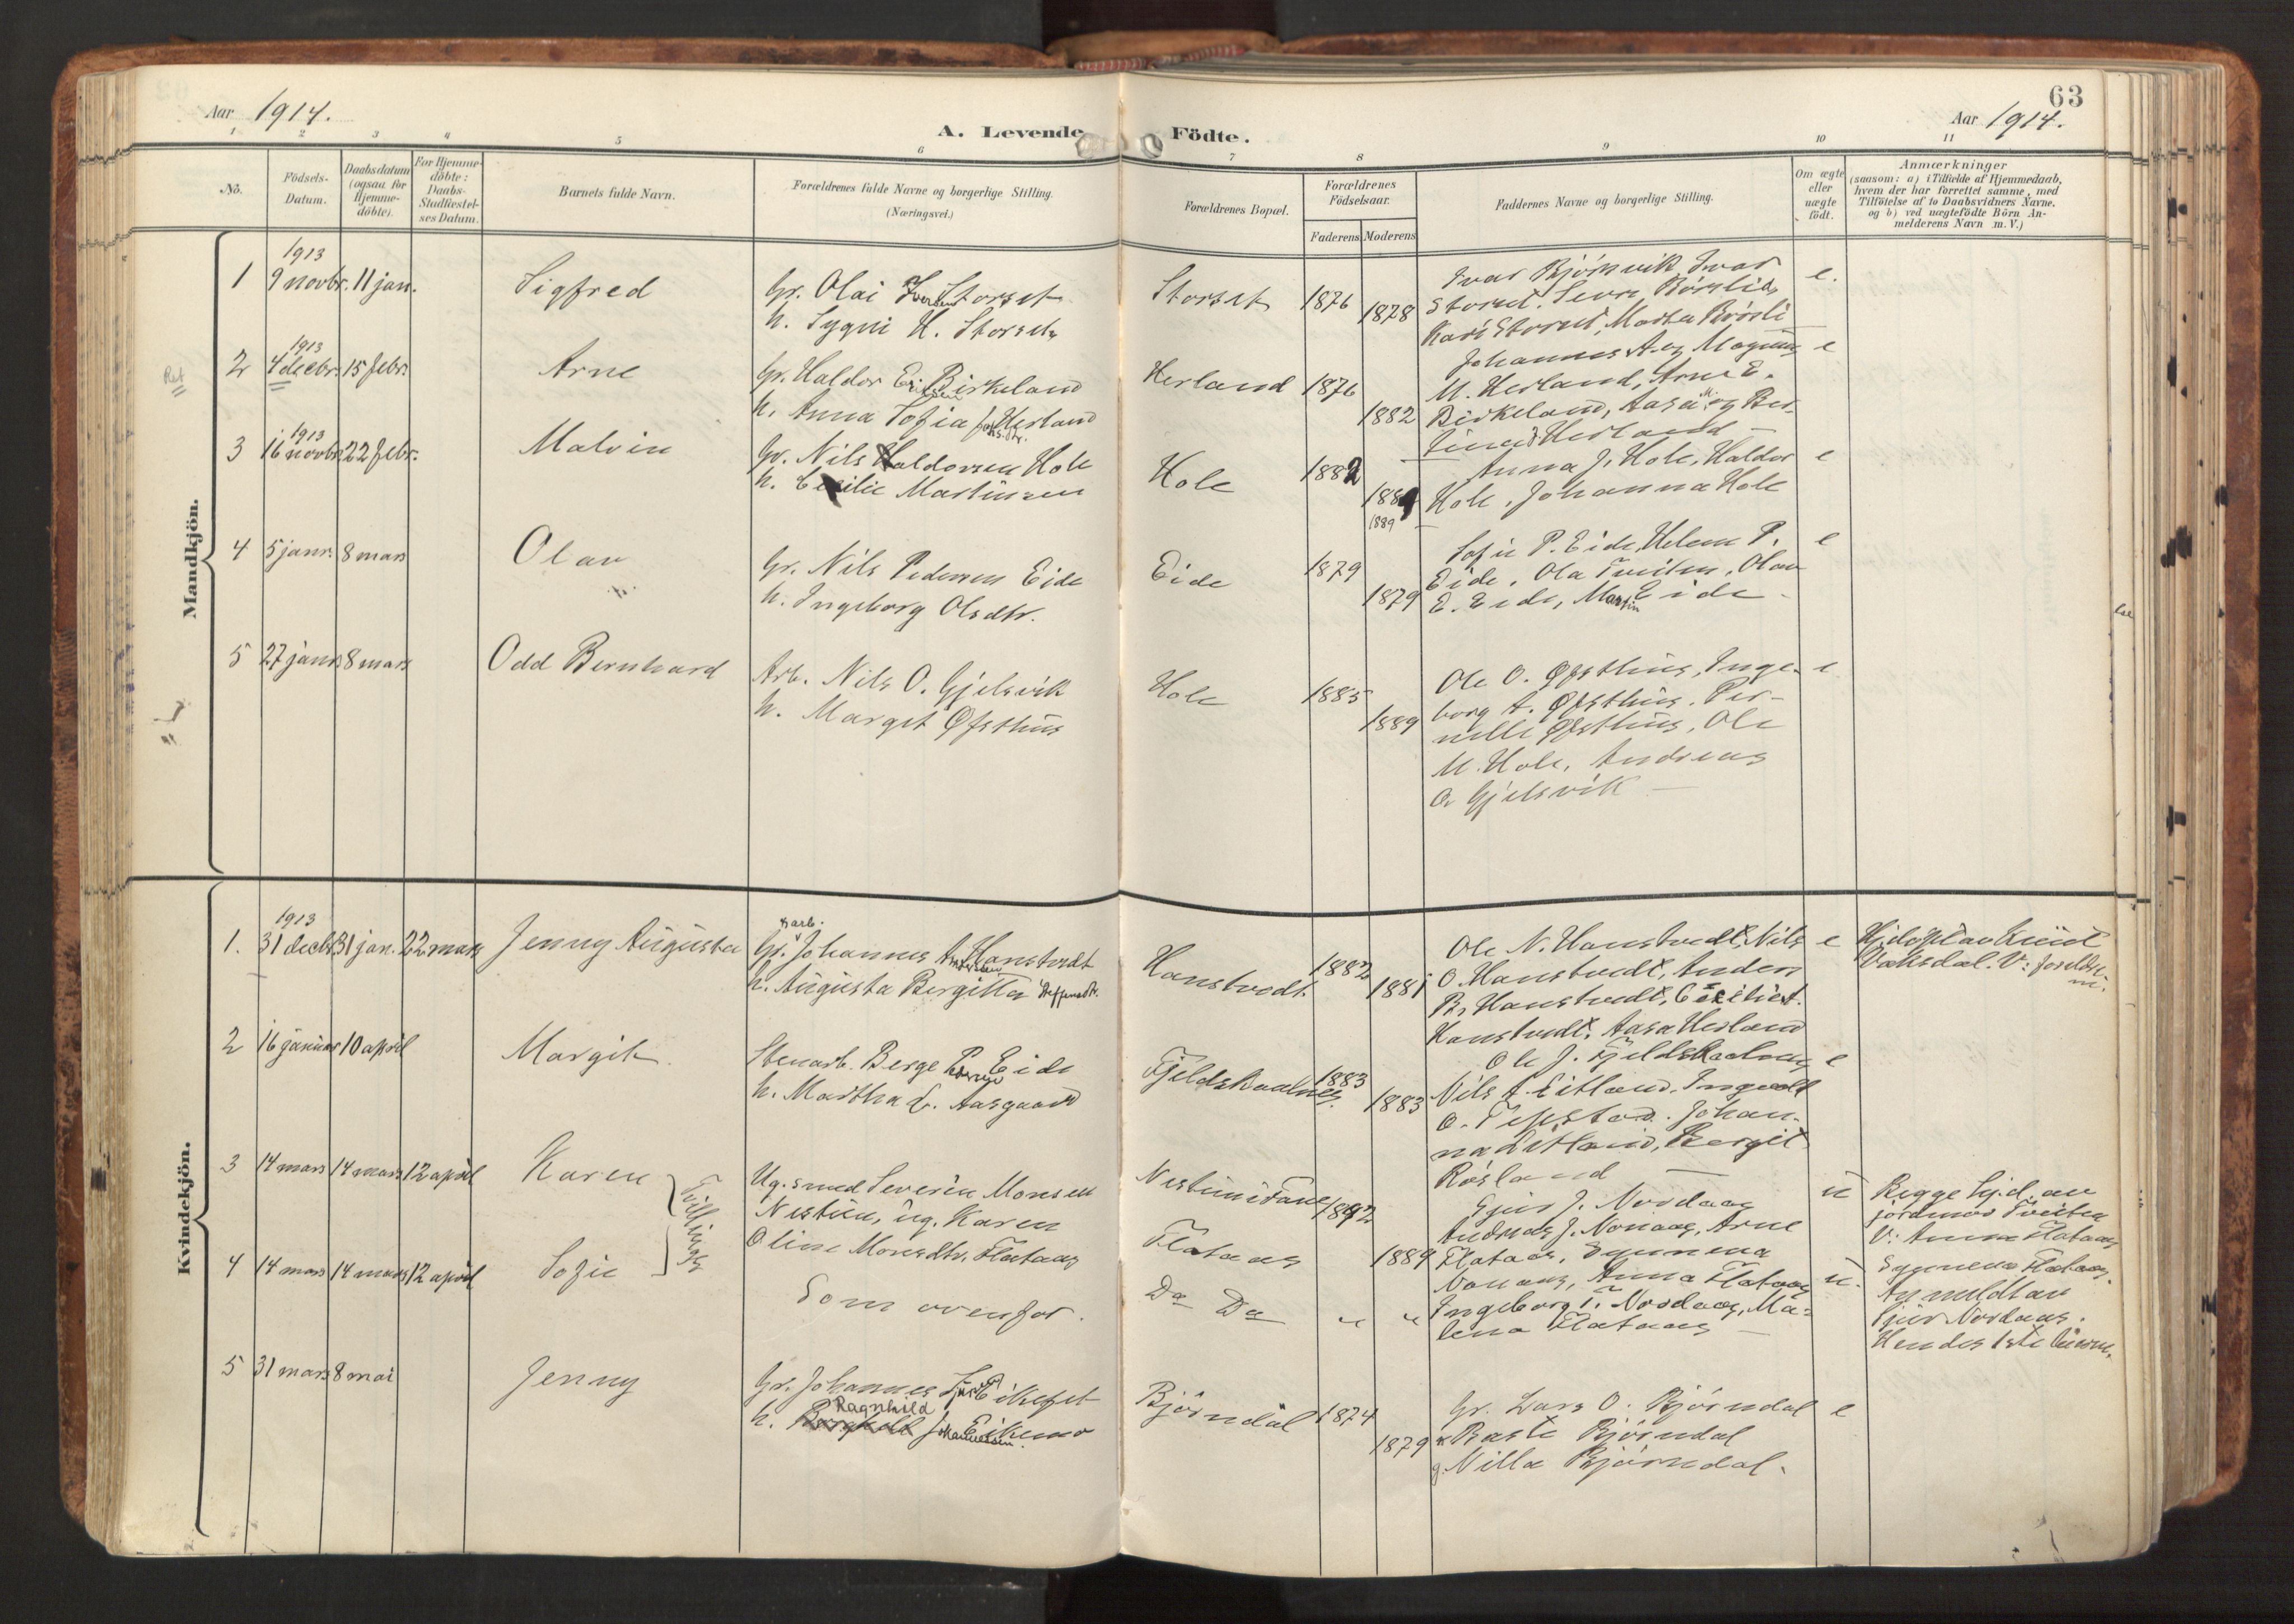 63
Aar 1914.
A. Levende Födte.
Aar 1914.
1 2 3 4 5 6 7 8 9 10 11
No.
Födsels-
Datum.
Daabsdatum
(ogsaa for
Hjemme-
döbte).
For Hjemme-
döbte:
Daabs-
Stadfæstel-
ses Datum.
Barnets fulde Navn.
Forældrenes fulde Navne og borgerlige Stilling.
(Næringsvei.)
Forældrenes Bopæl.
Forældrenes
Födselsaar.
Faderens Moderens
Faddernes Navne og borgerlige Stilling.
Om ægte
eller
uægte
födt.
Anmærkninger
(saasom: a) i Tilfælde af Hjemmedaab,
hvem der har forrettet samme, med
Tilföielse af to Daabsvidners Navne.
og b) ved uægtefödte Börn An-
melderens Navn m. V.)
Mandkjön.
1913
1 9 novbr. 11 jan.
Sigfred
Gr. Olai Iversen Storset
h. Sygni H. Storset
Storset 1876 1878
Ivar Bjørnvik, Ivar
Storset
Kari Storset, Marta
e.
Ret
1913
2 4 decbr. 15 febr.
Arne
Gr. Haldor Birkeland
h. Anna Sofia Herland
Herland 1876 1882
Johannes A. og Magnus
M. Herland, Arne E.
Birkeland, Aasa og Ber-
Herland
e
1913
3 16 novbr. 22 febr.
Malvin
Gr. Nils Haldorsen Hole
h. Cecilie Martinsen
Hole 1882
1889
Anna J. Hole, Haldor
Hole, Johanna Hole
e
4 5 janr. 8 mars
Olav
Gr. Nils Pedersen Eide
h. Ingeborg Olsdtr.
Eide 1879 1879
Sofie P. Eide, Helene P.
Eide, Ola Tveiten, Olav
E. Eide, Martin Eide
e
5 27 janr. 8 mars
Odd Bernhard
Arb. Nils O. Gjelsvik
h. Margit Øfsthus
Hole 1885 1889
Ole O. Øfsthus, Inge-
borg A. Øfsthus, Per-
nille Øfsthus, Ole
M. Hole, Andreas
O. Gjelsvik
e
Kvindekjön.
1913
1. 31 decbr. 31 jan. 22 mars
Jenny Augusta
arb.
Gr. Johannes Andersen Hanstvedt
h. Augusta Bergitta Steffensdtr.
Hanstvedt 1882 1881
Ole N. Hanstvedt, Nils
O. Hanstvedt, Anders
B. Hanstvedt, Cecilie A.
Hanstvedt, Aasa Herland
e
Hj.døpt av Knud
Vaksdal. V: foreldre-
ne.
2 16 januar 10 april
Margit
Stenarb. Berge Pedersen Eide
h. Martha L. Aasgaard
Fjeldskaalnes 1883 1883
Ole J. Fjeldskaalnes
Nils A. Eitland, Ingvald
O. Tepstad. Johan-
na Eitland, Bergit
Røsland
e
3 14 mars 14 mars 12 april
Karen
Tvillinger
Ug. smed Severin Monsen
Nestun, ug. Karen
Oline Monsdtr. Flataas
Nestun i Fane 1892
Flataas 1889
Gjur J. Nordaas
Andreas J. Nonaas, Arne
Flataas, Synneva
Nonaas, Anna Flataas
Ingeborg T. Nordaas, Ma-
lena Flataas
u
Begge hj.d. av
jordmor Tveiten
V: Anna Flataas
Synneva Flataas.
Anmeldt av
Gjur Nordaas.
Hendes 1ste
4 14 mars 14 mars 12 april
Sofie
Som ovenfor.
Do Do " "
u.
5 31 mars 8 mai
Jenny
Gr. Johannes Larsen Eikefet
h. Ragnhild Johannesen Eikemo
Bjørndal 1874 1879
Gr. Lars O. Bjørndal
Baste Bjørndal
g. Nilla Bjørndal.
e